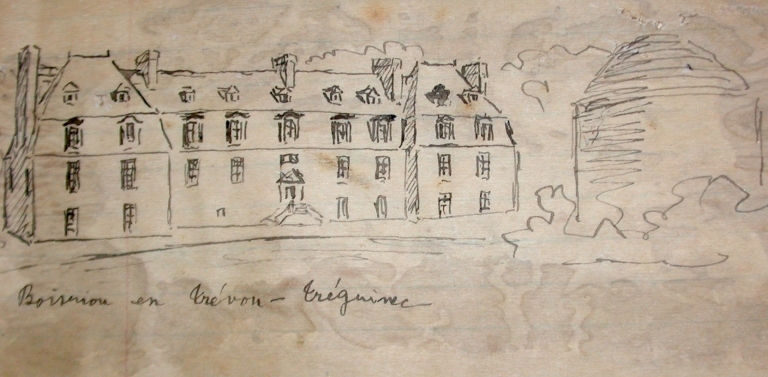 Boisriou en Trévou-Tréguinec